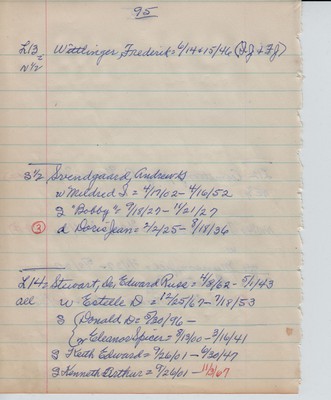 95
L13 = Wettlinger, Frederick = 6/14 & 15/46 (D.J. & F.J.)
N 1/2
S 1/2, Svendgaard, Andrew G
w Mildred I. = 4/17/02 - 4/16/52
S "Bobby" = 9/18/27 - 11/21/27
(3) d Doris Jean = 2/2/25 - 8/18/36
L14 = Stewart, Dr. Edward Ruse = 4/8/62 - 5/1/43
all w Estelle D. = 12/25/67 - 7/18/53
S Donald D = 5/20/96 -
w Eleanor Spicer = 8/13/00 - 3/16/41
S Keith Edward = 9/26/01 - 6/30/47
S Kenneth Arthur = 9/26/01 - 11/3/67